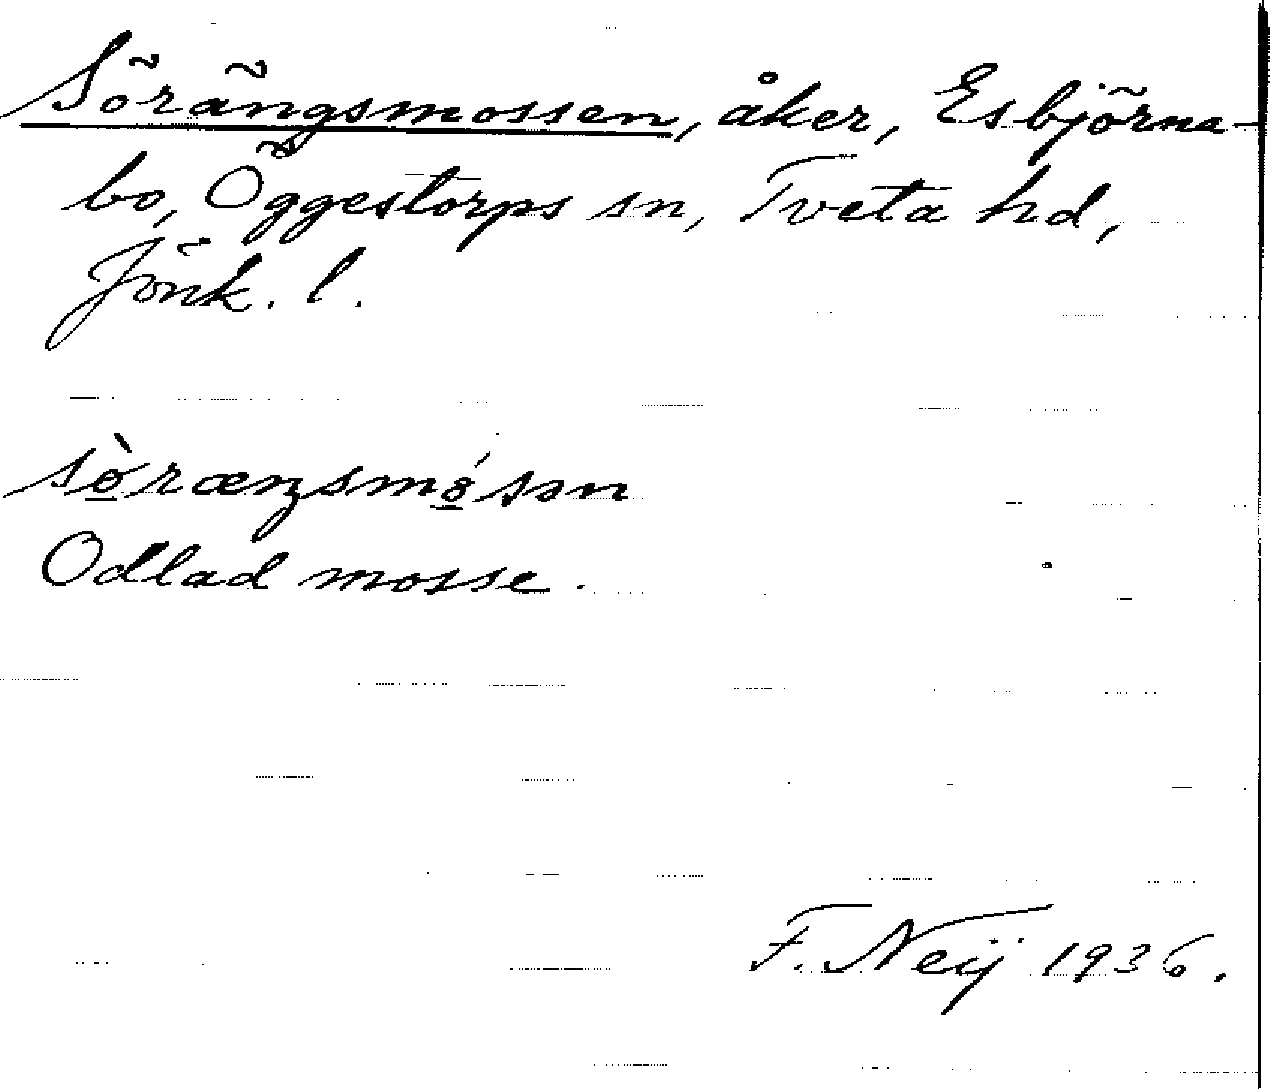 Sörängsmossen, åker, Esbjörna-
bo, Öggestorps sn, Tveta hd,
Jönk. l.
sö̀ræŋsmǿsən
Odlad mosse.
F. Neij 1936.